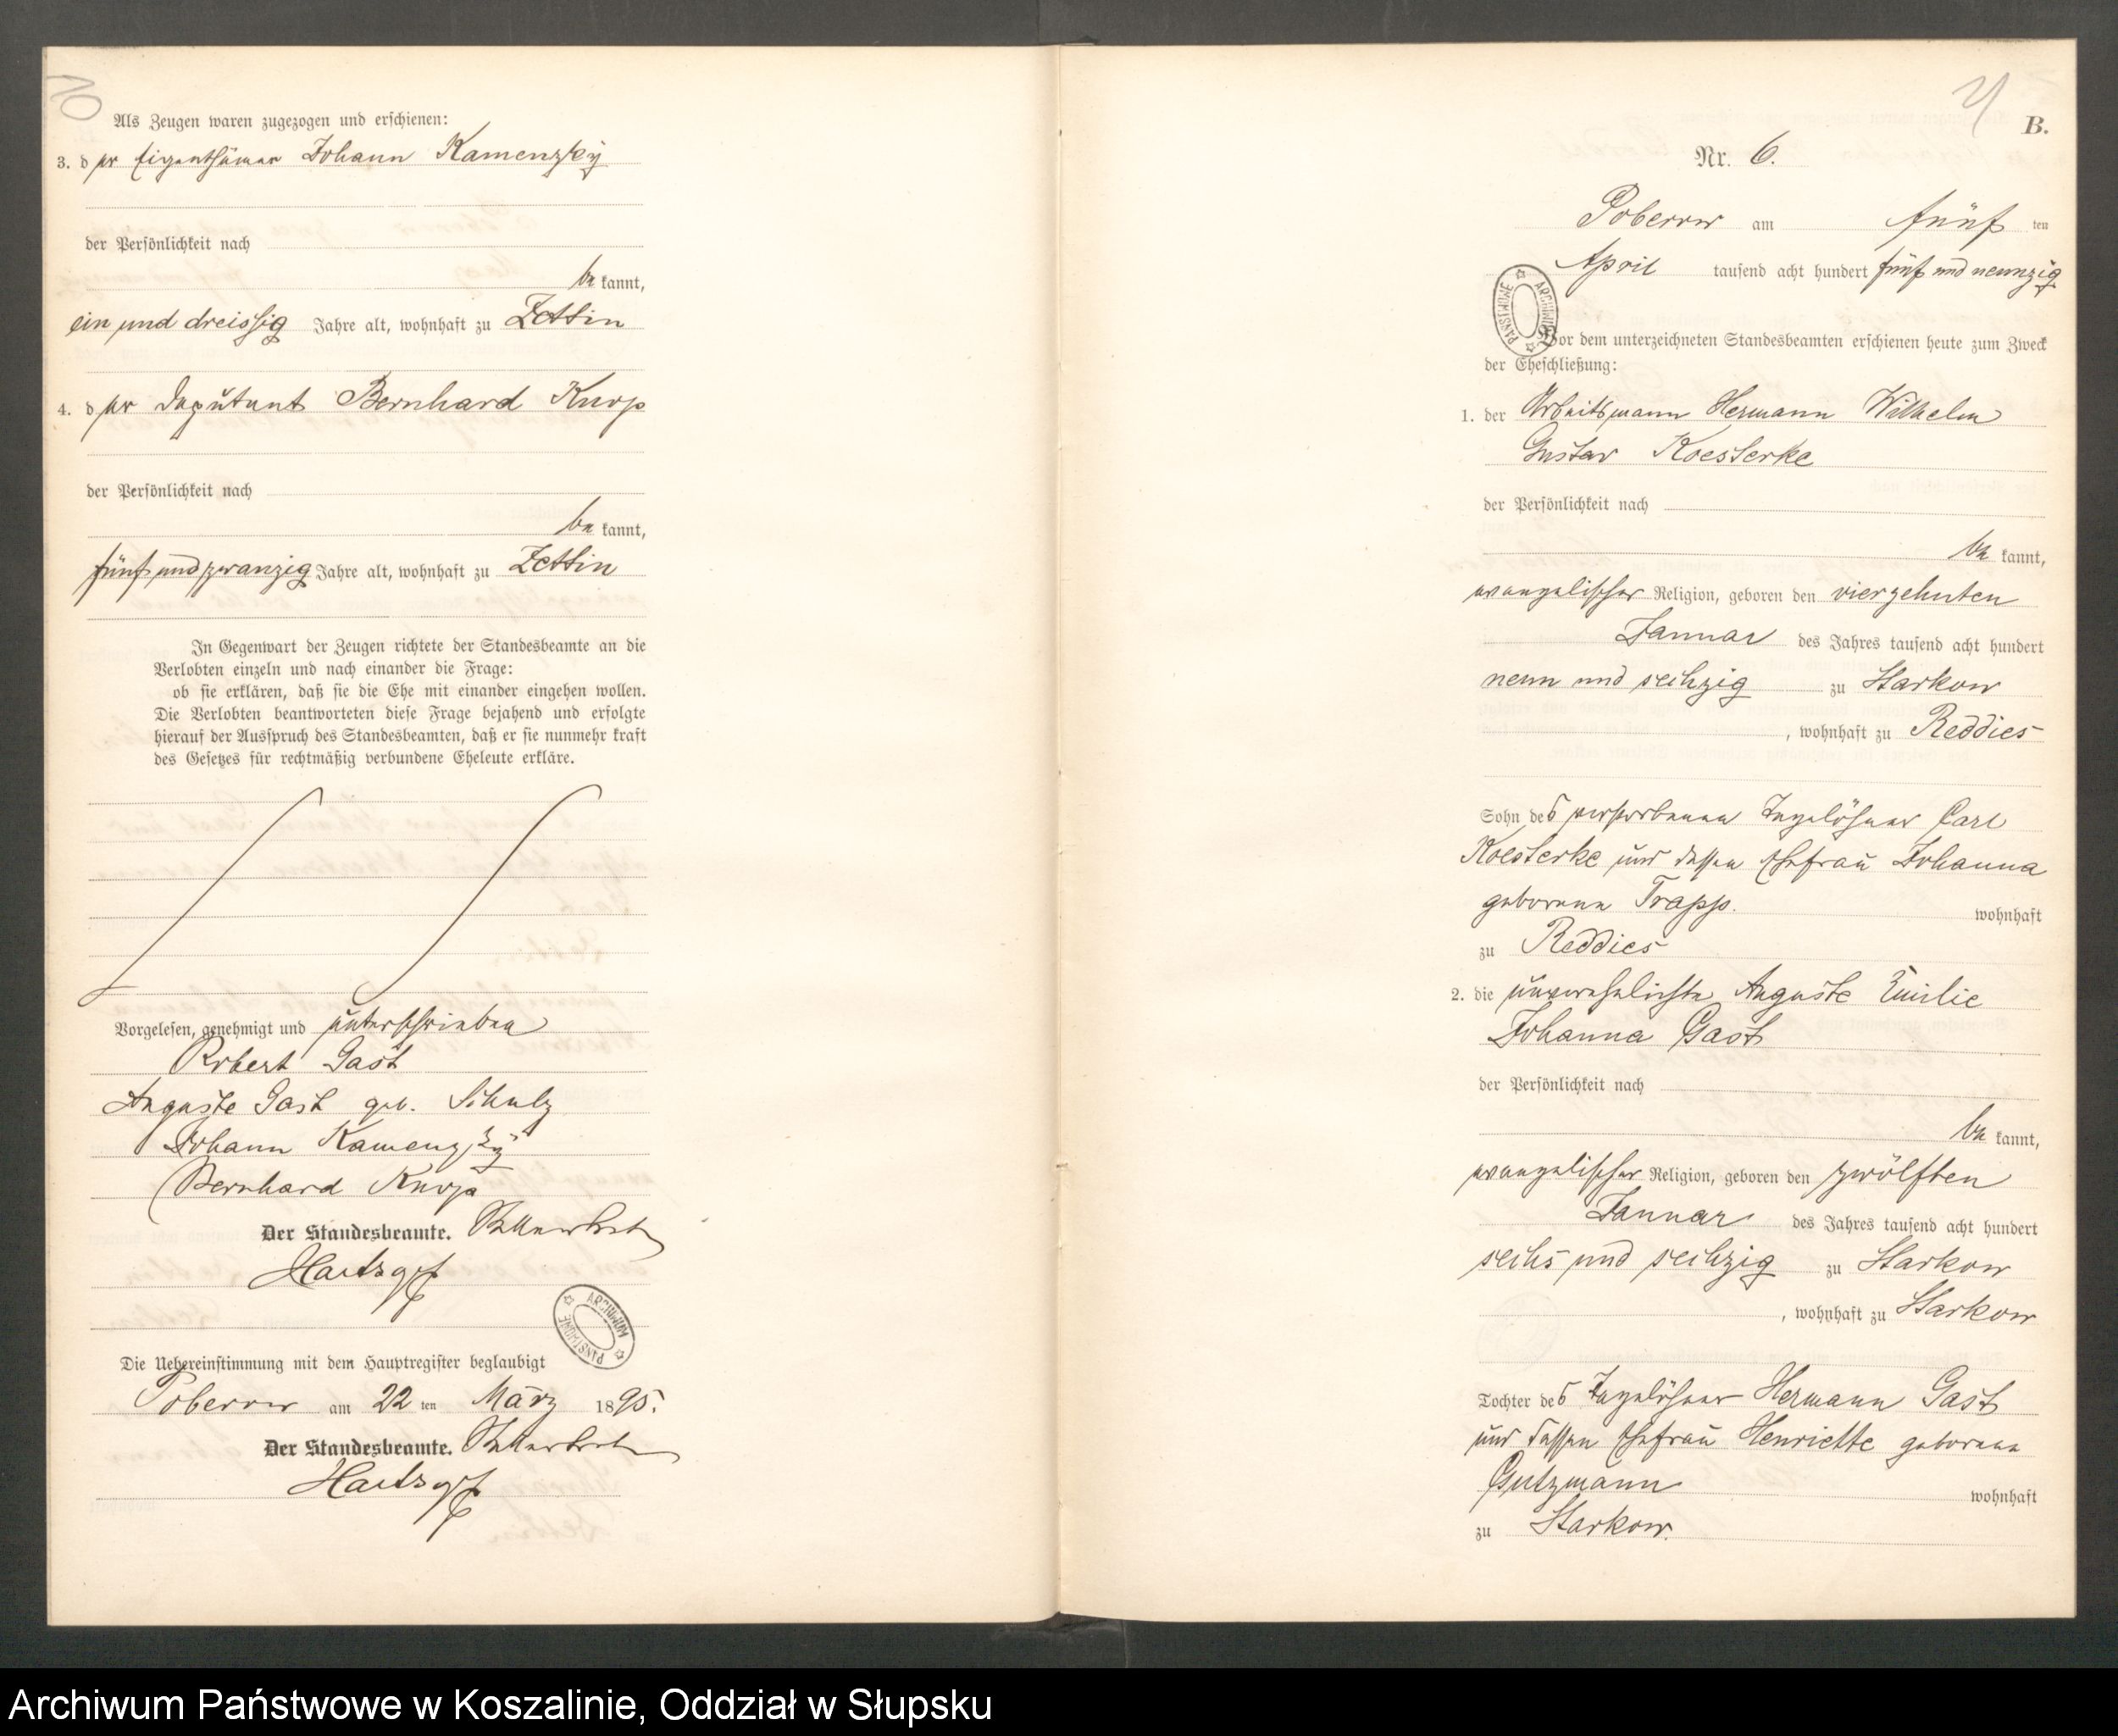 10
Als Zeugen waren zugezogen und erschienen:
3. der Eigenthümer Johann Kamenzky
der Persönlichkeit nach
be kannt,
ein und dreissig Jahre alt, wohnhaft zu Zettin
4. der Deputant Bernhard Knop
der Persönlichkeit nach
be kannt,
fünf und zwanzig Jahre alt, wohnhaft zu Zettin
In Gegenwart der Zeugen richtete der Standesbeamte an die
Verlobten einzeln und nach einander die Frage:
ob sie erklären, daß sie die Ehe mit einander eingehen wollen.
Die Verlobten beantworteten diese Frage bejahend und erfolgte
hierauf der Ausspruch des Standesbeamten, daß er sie nunmehr kraft
des Gesetzes für rechtmäßig verbundene Eheleute erkläre.
Vorgelesen, genehmigt und unterschrieben
Robert Gast
Auguste Gast geb. Schulz
Johann Kamenzky
Bernhard Knop
Der Standesbeamte.
ARCHIWUM PAŃSTWOWE
Die Uebereinstimmung mit dem Hauptregister beglaubigt
Poberow am 22 ten März 1895.
Der Standesbeamte.
B.
Nr. 6.
Poberow am fünf ten
April tausend acht hundert fünf und neunzig
ARCHIWUM PAŃSTWOWE
Vor dem unterzeichneten Standesbeamten erschienen heute zum Zweck
der Eheschließung:
1. der Arbeitsmann Hermann Wilhelm
Gustav Koesterke
der Persönlichkeit nach
be kannt,
evangelischer Religion, geboren den vierzehnten
Januar des Jahres tausend acht hundert
neun und sechzig zu Starkow
, wohnhaft zu Reddies
Sohn des verstorbenen Tagelöhner Carl
Koesterke und dessen Ehefrau Johanna
geborene Trapp. wohnhaft
zu Reddies
2. die unverehelichte Auguste Emilie
Johanna Gast
der Persönlichkeit nach
be kannt,
evangelischer Religion, geboren den zwölften
Januar des Jahres tausend acht hundert
sechs und sechzig zu Starkow
, wohnhaft zu Starkow
Tochter des Tagelöhner Hermann Gast
und dessen Ehefrau Henriette geborene
Gutzmann wohnhaft
zu Starkow.
Archiwum Państwowe w Koszalinie, Oddział w Słupsku